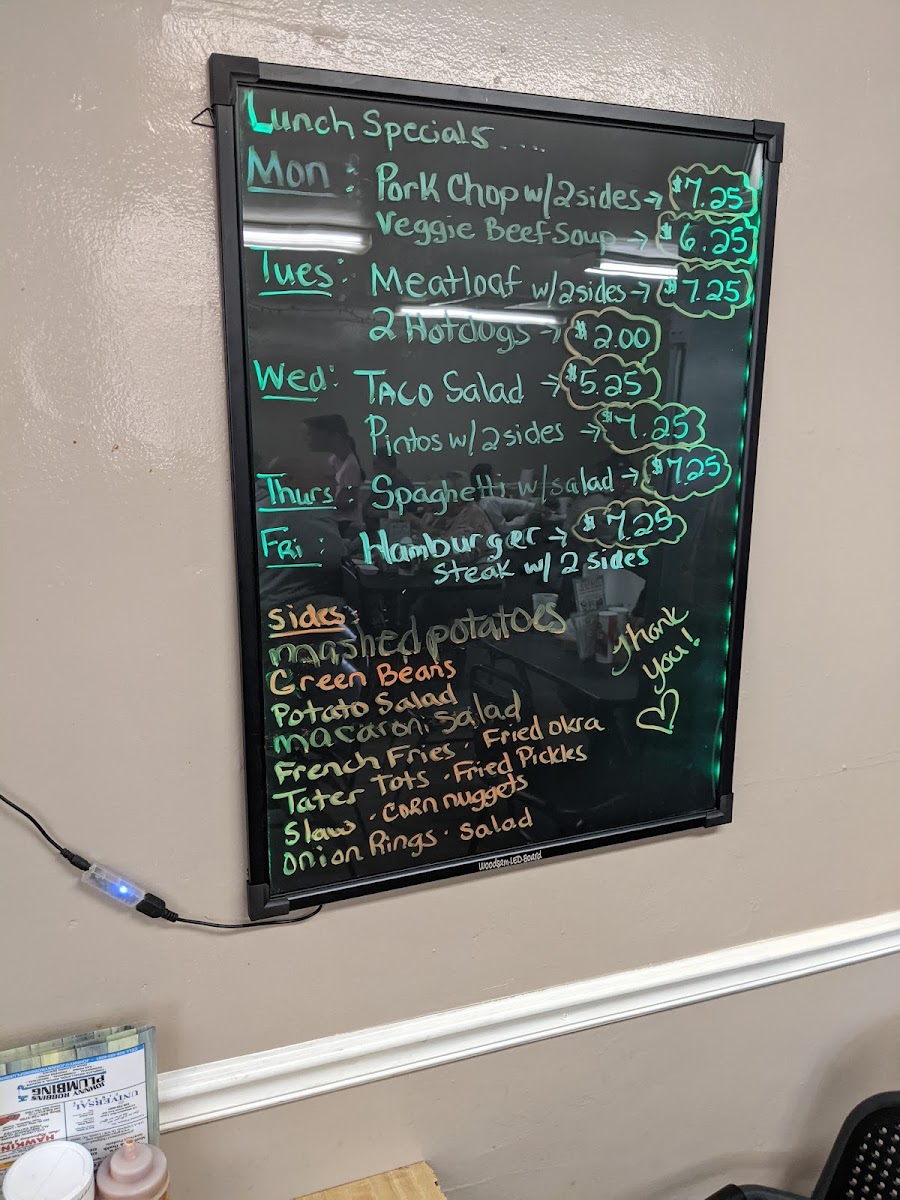 Lunch Specials.....
Mon: Pork Chop w/2sides→ $7.25
Veggie Beef Soup → $6.25
Tues: Meatloaf w/2sides→ $7.25
2 Hotdogs → $2.00
Wed: TACO Salad → $5.25
Pintos w/2sides → $7.25
Thurs: Spaghetti w/salad → $7.25
Fri: Hamburger → $7.25
Steak w/ 2 sides
Sides:
mashed potatoes
Green Beans
Potato Salad
macaroni salad
French Fries · Fried okra
Tater Tots · Fried Pickles
Slaw · Corn nuggets
onion Rings · salad
Thank
you!
Woodsam LED Board
JOHNNY ROBBINS
PLUMBING
UNIVERSAL